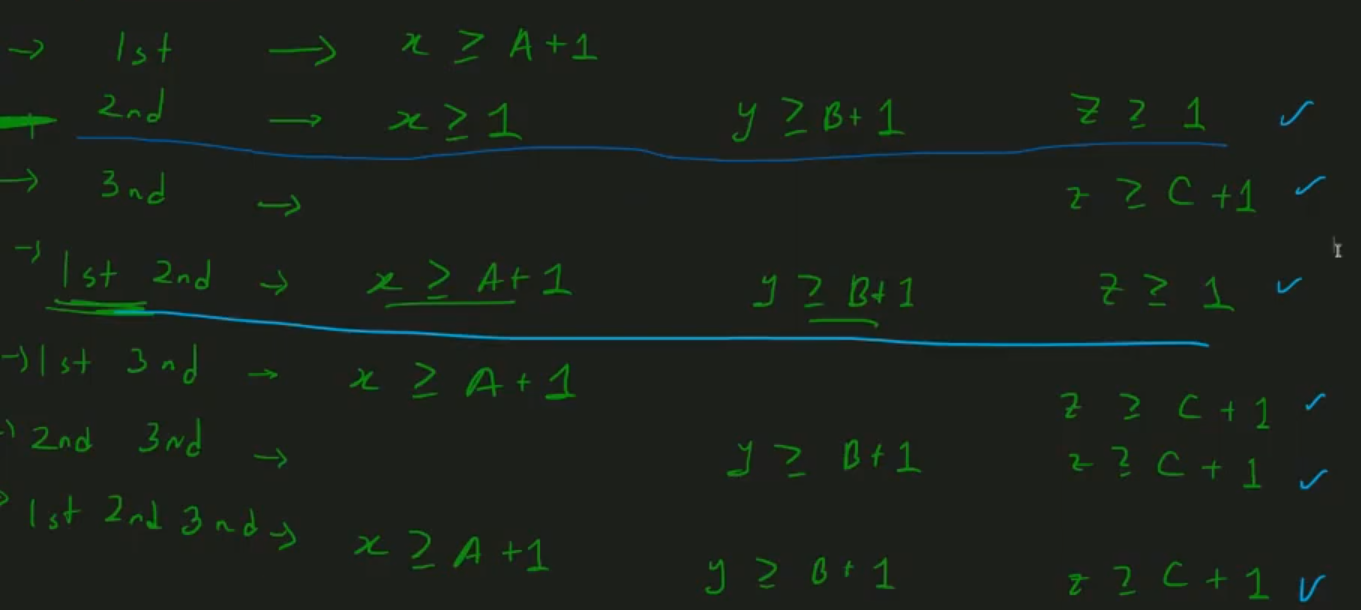 → 1st → x ≥ A+1
2nd → x ≥ 1 y ≥ B+1 z ≥ 1 ✓
→ 3nd → z ≥ C+1 ✓
→ 1st 2nd → x ≥ A+1 y ≥ B+1 z ≥ 1 ✓
→ 1st 3nd → x ≥ A+1 z ≥ C+1 ✓
→ 2nd 3nd → y ≥ B+1 z ≥ C+1 ✓
→ 1st 2nd 3nd → x ≥ A+1 y ≥ B+1 z ≥ C+1 ✓